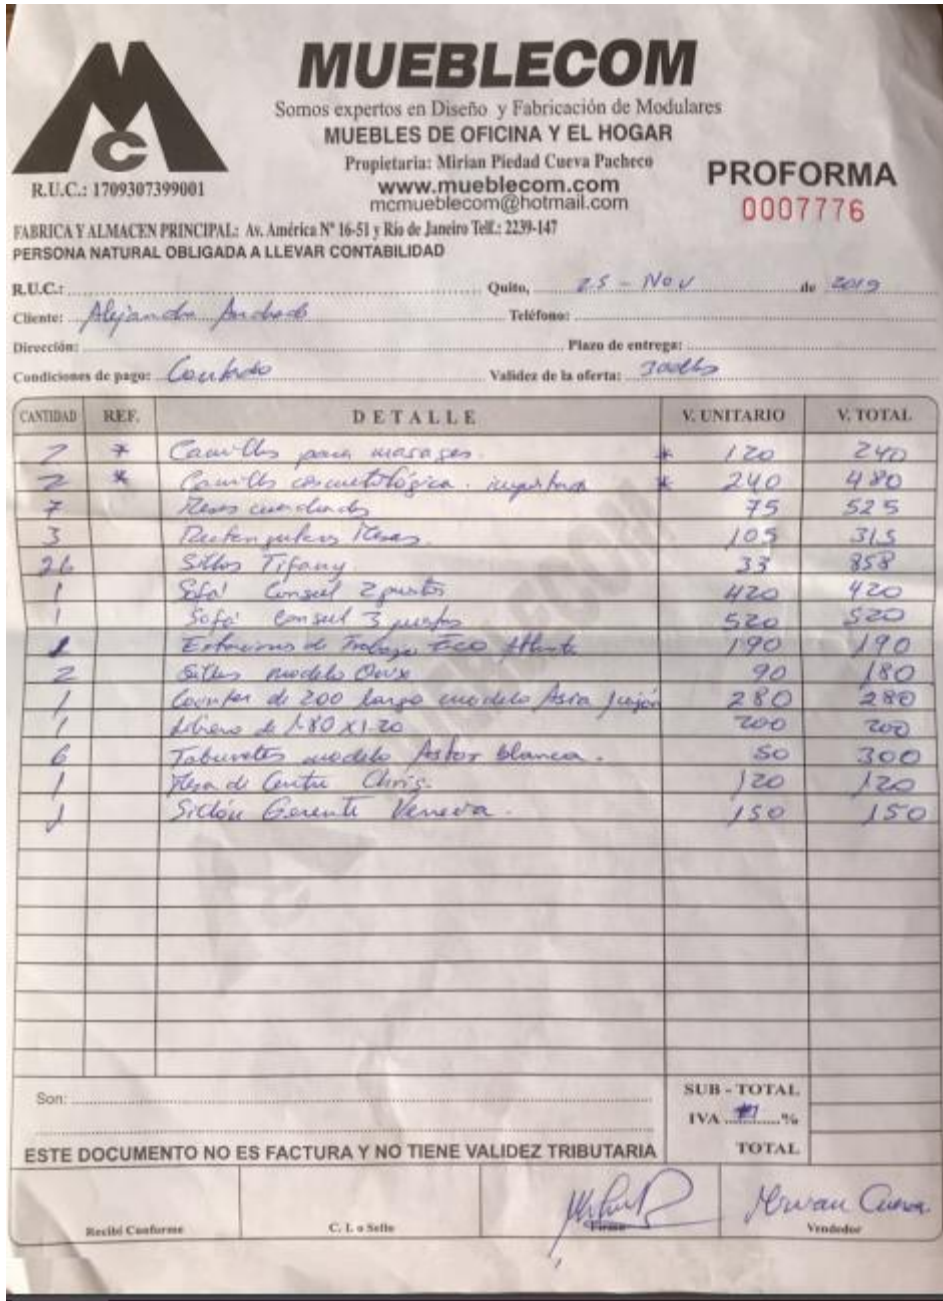 MUEBLECOM
Somos expertos en Diseño y Fabricación de Modulares
MUEBLES DE OFICINA Y EL HOGAR
Propietaria: Mirian Piedad Cueva Pacheco
www.mueblecom.com
mcmueblecom@hotmail.com
R.U.C.: 1709307399001
PROFORMA
0007776
FABRICA Y ALMACEN PRINCIPAL: Av. América Nº 16-51 y Río de Janeiro Telf.: 2239-147
PERSONA NATURAL OBLIGADA A LLEVAR CONTABILIDAD
R.U.C.: Quito, 25 - Nov de 2019
Cliente: Teléfono:
Dirección: Plazo de entrega:
Condiciones de pago: Contado Validez de la oferta:
CANTIDAD REF. DETALLE V. UNITARIO V. TOTAL
2 * Camillas para masages. * 120 240
2 * Camilla cosmetológica importada * 240 480
7 Mesas cuadradas 75 525
3 Rectangulares Mesas. 105 315
26 Sillas Tifany. 33 858
1 Sofá 2 puestos 420 420
1 Sofá 3 puestos 520 520
1 Estaciones de Trabajo Eco 190 190
2 Sillas modelo Onix 90 180
1 Counter de 200 largo modelo Asia 280 280
1 de 1.80 x 1.20 200 200
6 Taburetes modelo Astor blanca. 50 300
1 Mesa de Centro Chris. 120 120
1 Sillón Gerente 150 150
Son:
SUB - TOTAL
IVA %
TOTAL
ESTE DOCUMENTO NO ES FACTURA Y NO TIENE VALIDEZ TRIBUTARIA
Recibí Conforme C. I. o Sello Firma Vendedor